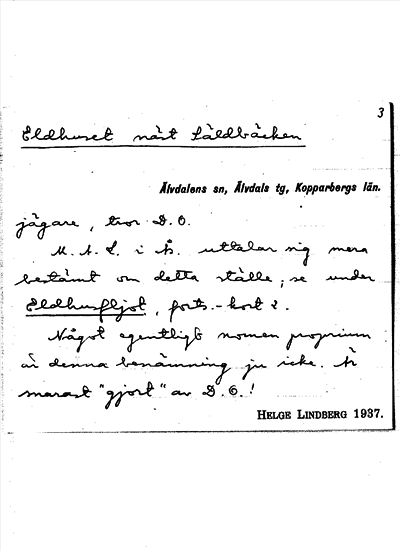 3
Eldhuset näst Säldbäcken
Älvdalens sn, Älvdals tg, Kopparbergs län.
jägare, tror D.O.
M. A. L. i Å. uttalar sig mera
bestämt om detta ställe; se under
Eldhusfljot, forts.-kort 2.
Något egentligt nomen proprium
är denna benämning ju icke. Är
marast "gjort" av D.O.!
HELGE LINDBERG 1937.